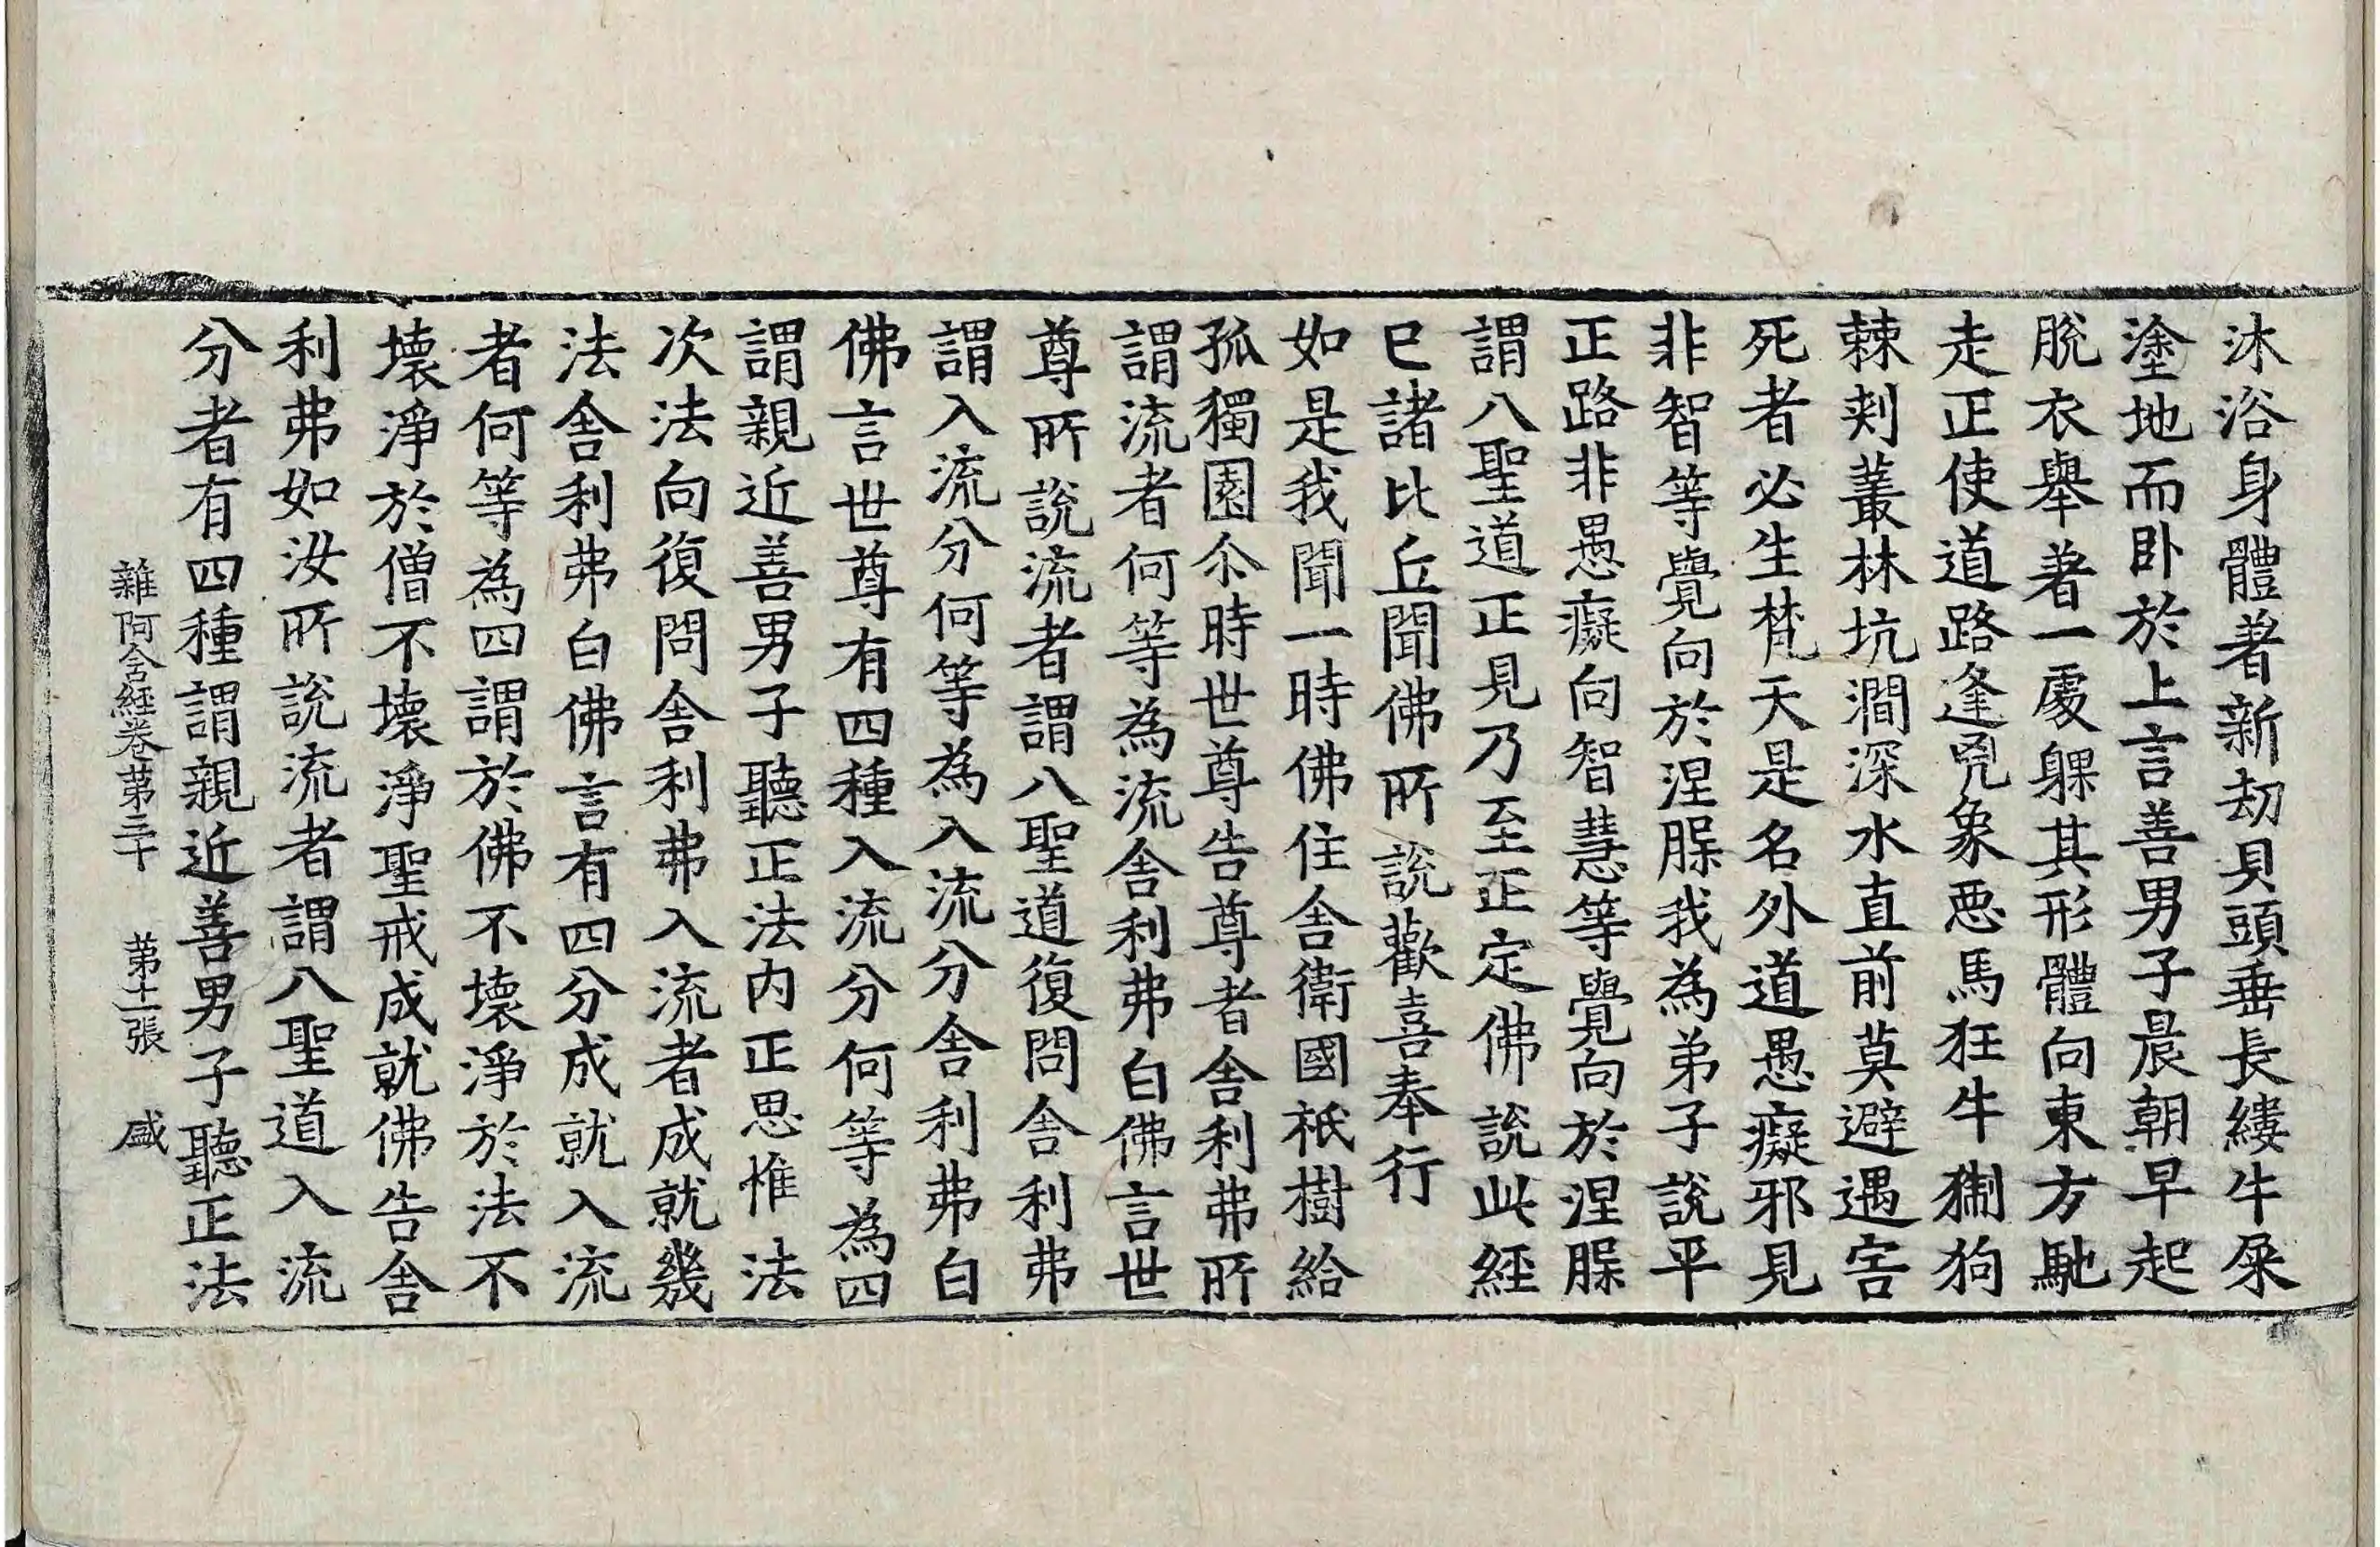 沐浴身體著新劫貝頭垂長縷牛屎
塗地而卧於上言善男子晨朝早起
脫衣舉著一處躶其形體向東方馳
走正使道路逢兇象惡馬狂牛猘狗
棘刾叢林坑澗深水直前莫避遇害
死者必生梵天是名外道愚癡邪見
非智等覺向於涅槃我為弟子說平
正路非愚癡向智慧等覺向於涅槃
謂八聖道正見乃至正定佛說此經
已諸比丘聞佛所說歡喜奉行
如是我聞一時佛住舍衛國祇樹給
孤獨園尒時世尊告尊者舍利弗所
謂流者何等為流舍利弗白佛言世
尊所說流者謂八聖道復問舍利弗
謂入流分何等為入流分舍利弗白
佛言世尊有四種入流分何等為四
謂親近善男子聽正法內正思惟法
次法向復問舍利弗入流者成就幾
法舍利弗白佛言有四分成就入流
者何等為四謂於佛不壞淨於法不
壞淨於僧不壞淨聖戒成就佛告舍
利弗如汝所說流者謂八聖道入流
分者有四種謂親近善男子聽正法
雜阿含経卷第三十 第十二張 盛